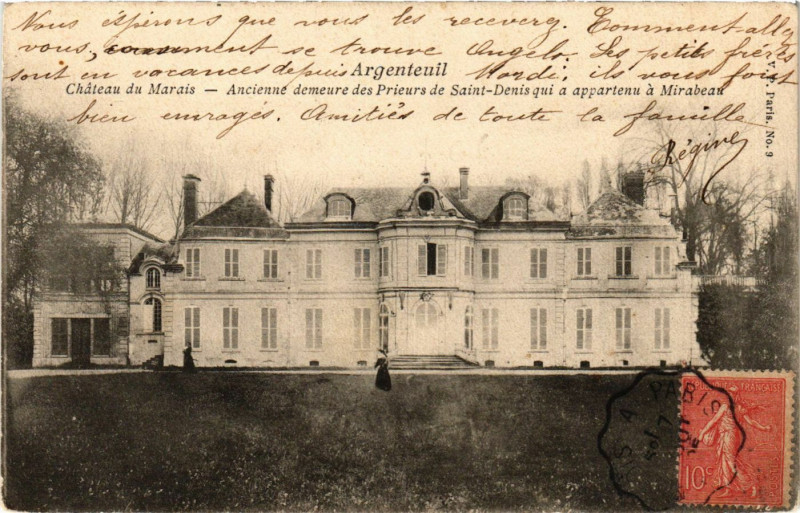 Nous espérons que vous les recevrez. Comment allez
vous, comment se trouve Angelo. Les petits frères
sont en vacances depuis Mardi, ils vous font
Argenteuil
Château du Marais — Ancienne demeure des Prieurs de Saint-Denis qui a appartenu à Mirabeau
bien enragés. Amitiés de toute la famille
Régine
Paris. No. 9
PARIS
RÉPUBLIQUE FRANÇAISE
10c